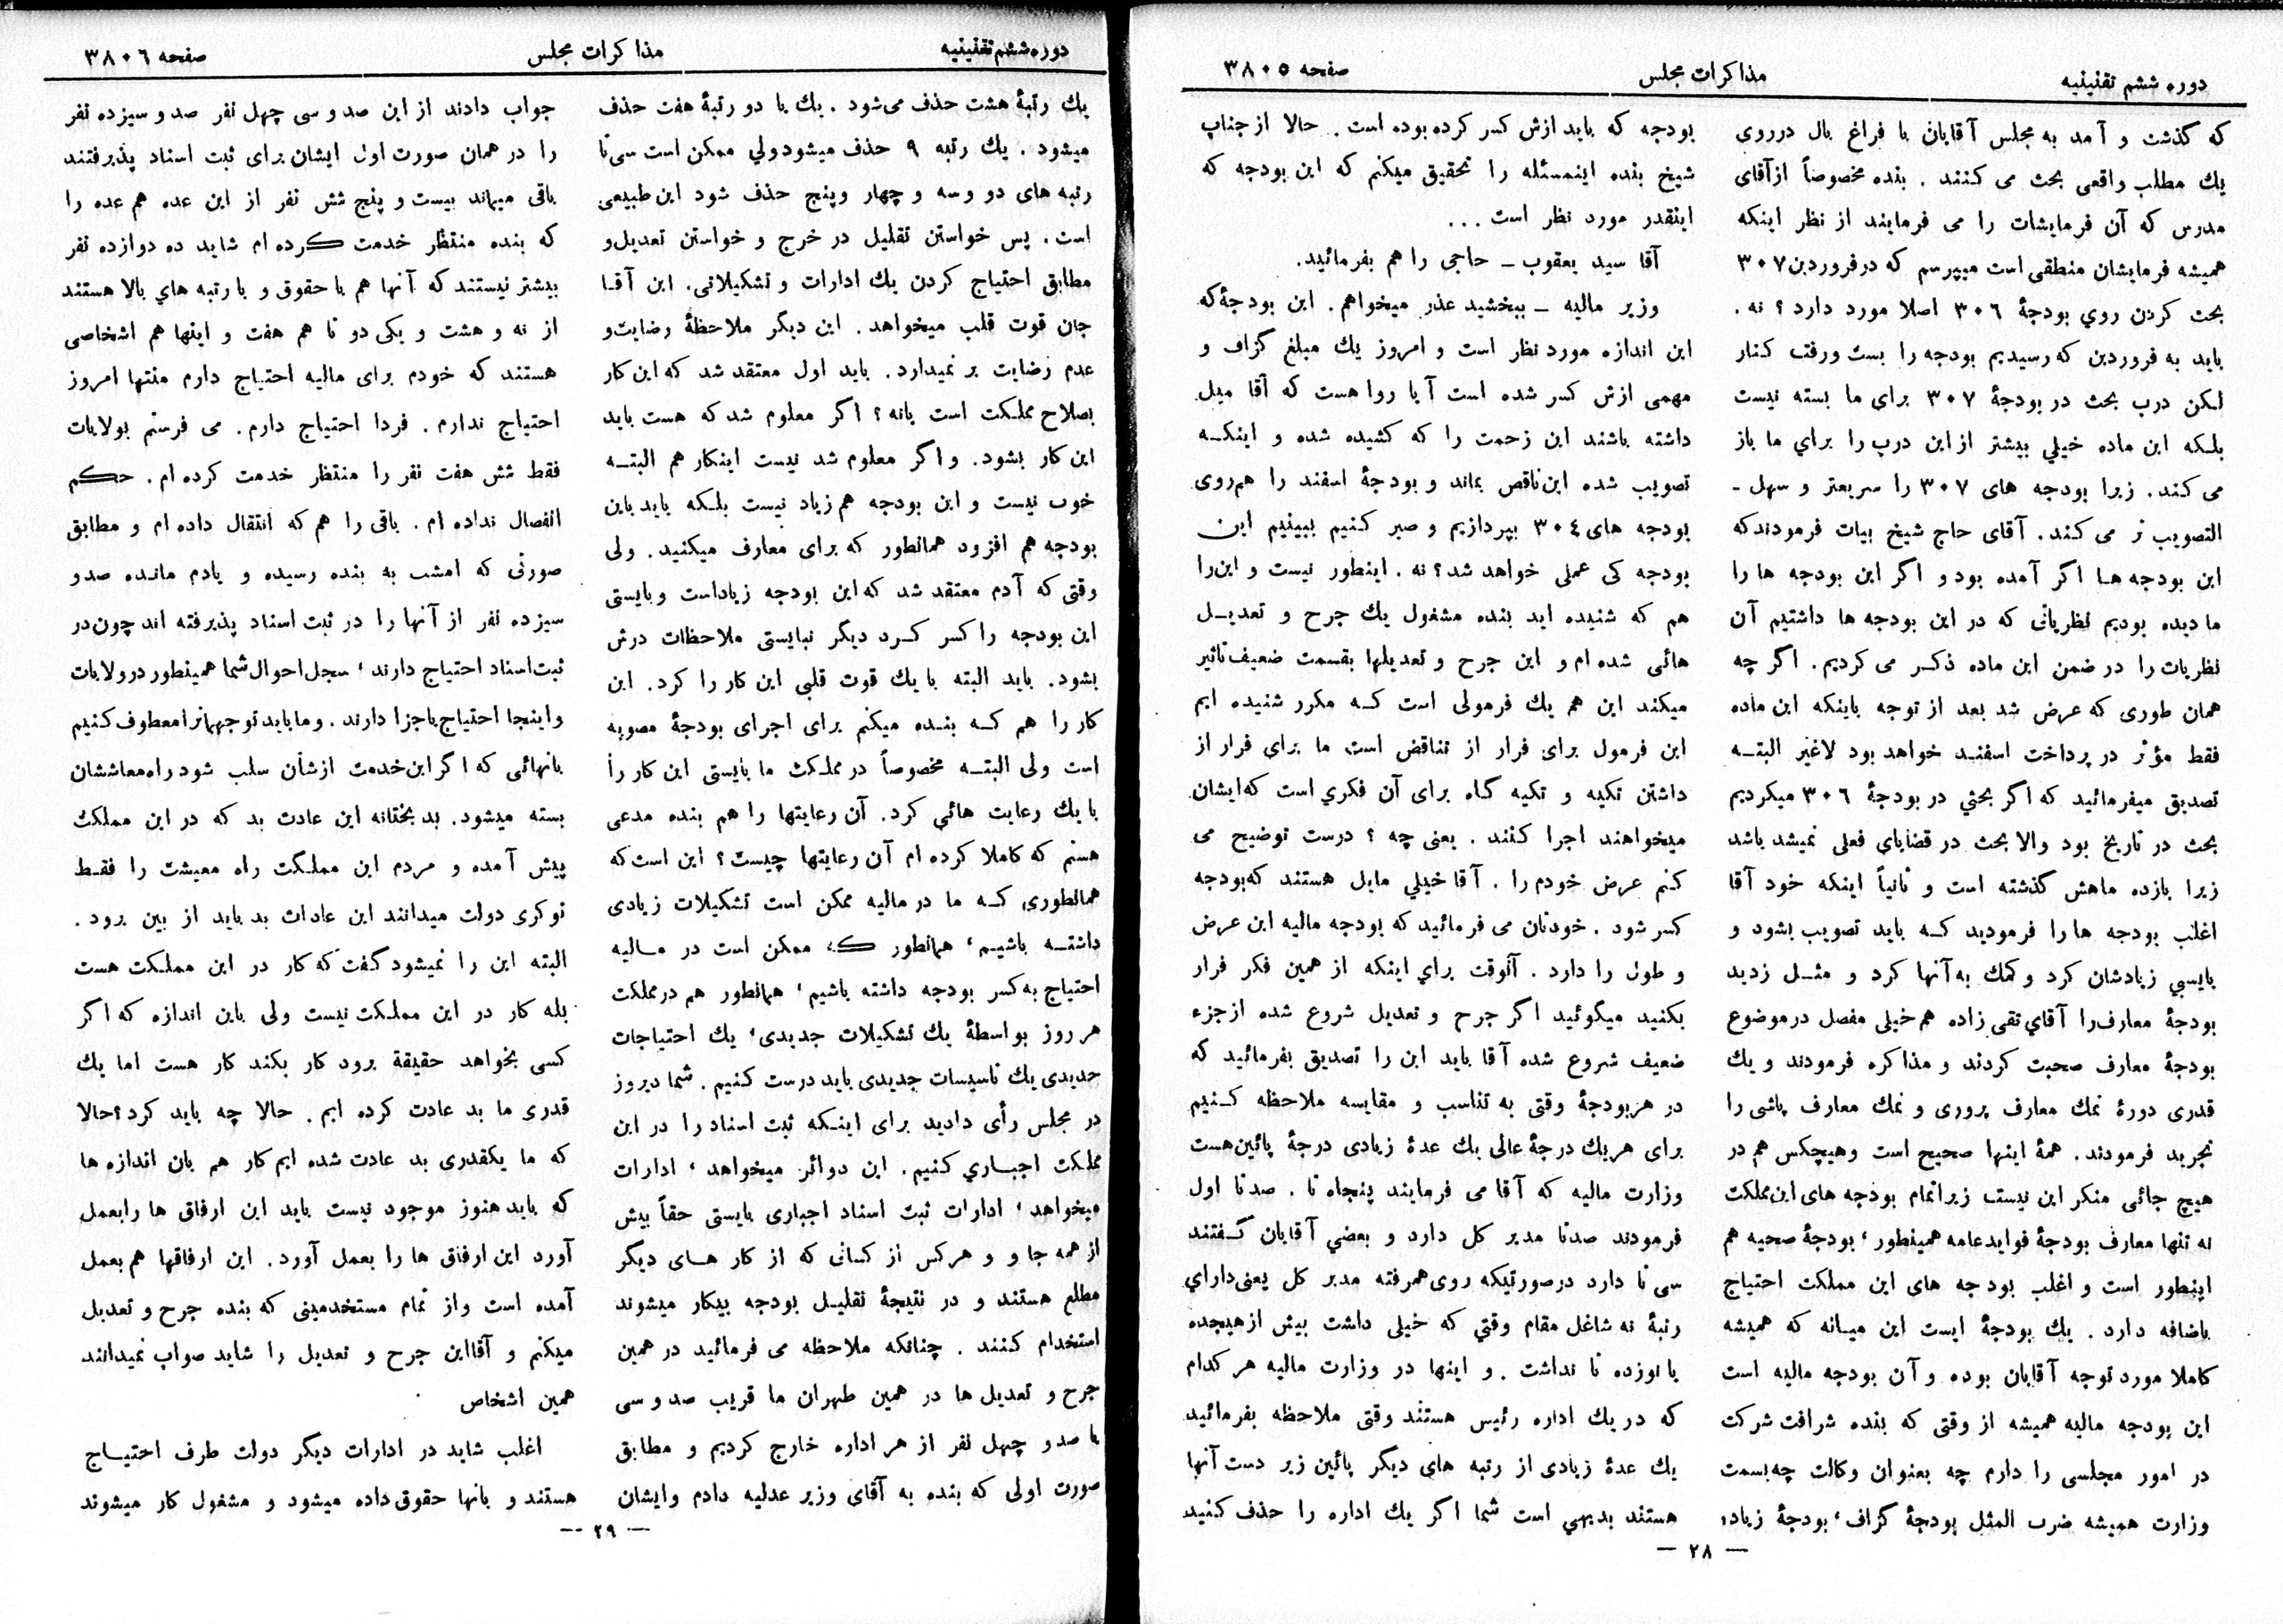 دوره ششم تقنینیه
مذاکرات مجلس
صفحه ۳۸۰۵
که گذشت و آمد به مجلس آقایان با فراغ بال درروی
یك مطلب واقعی بحث می کنند . بنده مخصوصاً ازآقای
مدرس که آن فرمایشات را می فرمایند از نظر اینکه
همیشه فرمایشان منطقی است میپرسم که درفروردین۳۰۷
بحث کردن روي بودجهٔ ۳۰۶ اصلا مورد دارد ؟ نه .
باید به فروردین که رسیدیم بودجه را بست ورفت کنار
لکن درب بحث در بودجهٔ ۳۰۷ برای ما بسته نیست
بلکه این ماده خیلي بیشتر از این درب را براي ما باز
می کند . زیرا بودجه های ۳۰۷ را سریعتر و سهل ـ
التصویب تر می کند . آقای حاج شیخ بیات فرمودندکه
این بودجه هـا اگر آمده بود و اگر این بودجه ها را
ما دیده بودیم نظریاتی که در این بودجه ها داشتیم آن
نظریات را در ضمن این ماده ذکر می کردیم . اگر چه
همان طوری که عرض شد بعد از توجه باینکه این ماده
فقط مؤثر در پرداخت اسفنـد خواهد بود لاغیر البتـه
تصدیق میفرمائید که اگر بحثي در بودجهٔ ۳۰۶ میکردیم
بحث در تاریخ بود والا بحث در قضایای فعلی نمیشد باشد
زیرا یازده ماهش گذشته است و ثانیاً اینکه خود آقا
اغلب بودجه ها را فرمودید کـه باید تصویب بشود و
بایستي زیادشان کرد و کمك به آنها کرد و مثـل زدید
بودجهٔ معارف را آقاي تقی زاده هم خیلی مفصل درموضوع
بودجهٔ معارف صحبت کردند و مذاکره فرمودند و یك
قدری دورهٔ نمك معارف پروری و نمك معارف پاشی را
تجربد فرمودند . همهٔ اینها صحیح است وهیچکس هم در
هیچ جائی منکر این نیست زیراتمام بودجه های این مملکت
نه تنها معارف بودجهٔ فوایدعامه همینطور ٬ بودجهٔ صحیه هم
اینطور است و اغلب بودجه های این مملکت احتیاج
باضافه دارد . یك بودجهٔ ایست این میـانه که همیشه
کاملا مورد توجه آقایان بوده و آن بودجه مالیه است
این بودجه مالیه همیشه از وقتی که بنده شرافت شرکت
در امور مجلسی را دارم چه بعنوان وکالت چه بسمت
وزارت همیشه ضرب المثل بودجهٔ گزاف ٬ بودجهٔ زیاد ٬
بودجه که باید ازش کسر کرده بوده است . حالا از جناب
شیخ بنده اینمسئله را تحقیق میکنم که این بودجه که
اینقدر مورد نظر است ...
آقا سید یعقوب ـ حاجی را هم بفرمائید.
وزیر مالیه ـ ببخشید عذر میخواهم . این بودجهٔ که
این اندازه مورد نظر است و امروز یك مبلغ گزاف و
مهمی ازش کسر شده است آیا روا هست که آقا میل
داشته باشند این زحمت را که کشیده شده و اینکـه
تصویب شده این ناقص بماند و بودجهٔ اسفند را هم روی
بودجه های ۳۰۴ بپردازیم و صبر کنیم ببینیم این
بودجه کی عملی خواهد شد؟ نه . اینطور نیست و این را
هم که شنیده اید بنده مشغول یك جرح و تعدیـل
هائی شده ام و این جرح و تعدیلها بقسمت ضعیف تأثیر
میکند این هم یك فرمولی است کـه مکرر شنیده ایم
این فرمول برای فرار از تناقض است ما برای فرار از
داشتن تکیه و تکیه گاه برای آن فکري است که ایشان
میخواهند اجرا کنند . یعنی چه ؟ درست توضیح می
کنم عرض خودم را . آقا خیلي مایل هستند که بودجه
کسر شود . خودتان می فرمائید که بودجه مالیه این عرض
و طول را دارد . آنوقت براي اینکه از همین فکر فرار
بکنید میگوئید اگر جرح و تعدیل شروع شده از جزء
ضعیف شروع شده آقا باید این را تصدیق بفرمائید که
در هر بودجهٔ وقتی به تناسب و مقایسه ملاحظه کـنیم
برای هر یك درجهٔ عالی یك عدهٔ زیادی درجهٔ پائین هست
وزارت مالیه که آقا می فرمایند پنجاه تا . صد تا اول
فرمودند صدتا مدیر کل دارد و بعضي آقایان گـفتند
سی تا دارد درصورتیکه روی همرفته مدیر کل یعنی داراي
رتبهٔ نه شاغل مقام وقتي که خیلی داشت بیش از هیجده
یا نوزده تا نداشت . و اینها در وزارت مالیه هر کدام
که در یك اداره رئیس هستند وقتی ملاحظه بفرمائید
یك عدهٔ زیادی از رتبه های دیگر پائین زیر دست آنها
هستند بدیهي است شما اگر یك اداره را حذف کنید
— ۲۸ —
دوره ششم تقنینیه
مذاکرات مجلس
صفحه ۳۸۰۶
یك رتبهٔ هشت حذف می شود . یك یا دو رتبهٔ هفت حذف
میشود . یك رتبه ۹ حذف میشودولي ممکن است سی تا
رتبه های دو وسه و چهار وپنج حذف شود این طبیعی
است . پس خواستن تقلیل در خرج و خواستن تعدیل و
مطابق احتیاج کردن یك ادارات و تشکیلاتی . این آقـا
جان قوت قلب میخواهد . این دیگر ملاحظهٔ رضایت و
عدم رضایت بر نمیدارد . باید اول معتقد شد که این کار
بصلاح مملکت است یانه ؟ اگر معلوم شد که هست باید
این کار بشود . و اگر معلوم شد نیست اینکار هم البتـه
خوب نیست و این بودجه هم زیاد نیست بلکه باید باین
بودجه هم افزود همانطور که برای معارف میکنید . ولی
وقتی که آدم معتقد شد که این بودجه زیاداست وبایستی
این بودجه را کسر کـرد دیگر نبایستی ملاحظات درش
بشود . باید البته با یك قوت قلبی این کار را کرد . این
کار را هم کـه بنـده میکنم برای اجرای بودجهٔ مصوبه
است ولی البتـه مخصوصاً در مملکت ما بایستی این کار را
با یك رعایت هائي کرد . آن رعایتها را هم بنده مدعی
هستم که کاملا کرده ام آن رعایتها چیست ؟ این است که
همانطوری کـه ما در مالیه ممکن است تشکیلات زیادی
داشتـه باشیـم ٬ همانطور که ممکن است در مـالیه
احتیاج به کسر بودجه داشته باشیم ٬ همانطور هم در مملکت
هر روز بواسطهٔ یك تشکیلات جدیدی ٬ یك احتیاجات
جدیدی یك تاسیسات جدیدی باید درست کنیم . شما دیروز
در مجلس رأی دادید برای اینـکه ثبت اسناد را در این
مملکت اجبـاري کنیم . این دوائر میخواهد ٬ ادارات
میخواهد ٬ ادارات ثبت اسناد اجباری بایستی حقاً بیش
از همه جا و و هر کس از کسانی که از کار هـای دیگر
مطلع هستند و در نتیجهٔ تقلیـل بودجه بیکار میشوند
استخدام کنند . چنانکه ملاحظه می فرمائید در همین
جرح و تعدیل ها در همین طهران ما قریب صد و سی
یا صد و چهل نفر از هر اداره خارج کردیم و مطابق
صورت اولی که بنده به آقای وزیر عدلیه دادم وایشان
جواب دادند از این صد و سی چهل نفر صد و سیزده نفر
را در همان صورت اول ایشان برای ثبت اسناد پذیرفتند
باقی میماند بیست و پنج شش نفر از این عده هم عده را
که بنده منتظر خدمت کرده ام شاید ده دوازده نفر
بیشتر نیستند که آنها هم با حقوق و با رتبه هاي بالا هستند
از نه و هشت و یکی دو تا هم هفت و اینها هم اشخاصی
هستند که خودم برای مالیه احتیاج دارم منتها امروز
احتیاج ندارم . فردا احتیاج دارم . می فرستم بولایات
فقط شش هفت نفر را منتظر خدمت کرده ام . حکم
انفصال نداده ام . باقی را هم که انتقال داده ام و مطابق
صورتی که امشب به بنده رسیده و یادم مانده صدو
سیزده نفر از آنها را در ثبت اسناد پذیرفته اند چون در
ثبت اسناد احتیاج دارند ٬ سجل احوال شما همینطور درولایات
واینجا احتیاج باجزا دارند . وما باید توجهمانرامعطوف کنیم
بانهائی که اگر این خدمت ازشان سلب شود راه معاششان
بسته میشود . بد بختانه این عادت بد که در این مملکت
پیش آمده و مردم این مملکت راه معیشت را فقـط
نوکری دولت میدانند این عادات بد باید از بین برود .
البته این را نمیشود گفت که کار در این مملکت هست
بله کار در این مملکت نیست ولی باین اندازه که اگر
کسی بخواهد حقیقة برود کار بکند کار هست اما یك
قدری ما بد عادت کرده ایم . حالا چه باید کرد؟حالا
که ما یکقدری بد عادت شده ایم کار هم بان اندازه ها
که باید هنوز موجود نیست باید این ارفاق ها رابعمل
آورد این ارفاق ها را بعمل آورد . این ارفاقها هم بعمل
آمده است واز تمام مستخدمینی که بنده جرح و تعدیل
میکنم و آقااین جرح و تعدیل را شاید صواب نمیدانند
همین اشخاص
اغلب شاید در ادارات دیگر دولت طرف احتیـاج
هستند و بانها حقوق داده میشود و مشغول کار میشوند
— ۲۹ —